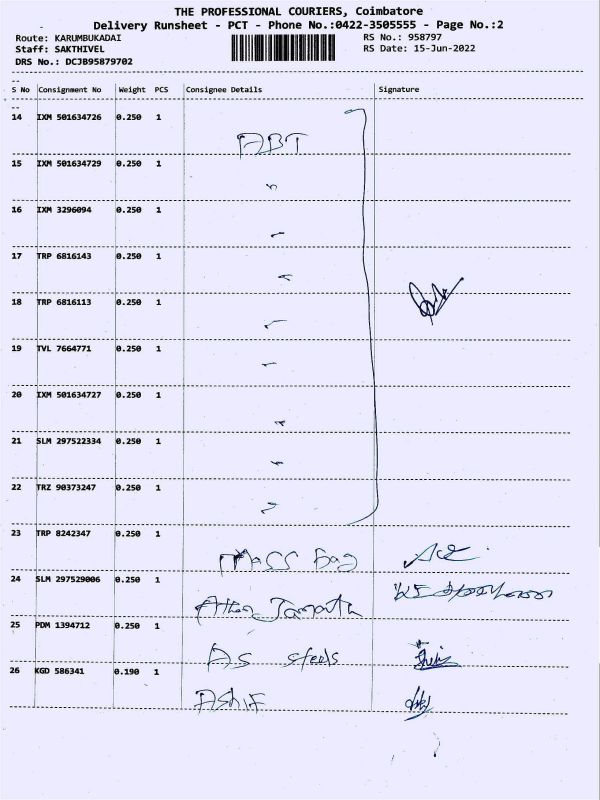 THE PROFESSIONAL COURIERS, Coimbatore
Delivery Runsheet - PCT - Phone No.:0422-3505555 - Page No.:2
Route: KARUMBUKADAI RS No.: 958797
Staff: SAKTHIVEL RS Date: 15-Jun-2022
DRS No.: DCJB95879702
S No Consignment No Weight PCS Consignee Details Signature
14 IXM 501634726 0.250 1
ABT
15 IXM 501634729 0.250 1
16 IXM 3296094 0.250 1
17 TRP 6816143 0.250 1
18 TRP 6816113 0.250 1
19 TVL 7664771 0.250 1
20 IXM 501634727 0.250 1
21 SLM 297522334 0.250 1
22 TRZ 90373247 0.250 1
23 TRP 8242347 0.250 1
Mass Bag
24 SLM 297529006 0.250 1
25 PDM 1394712 0.250 1
AS steels
26 KGD 586341 0.190 1
Ashif